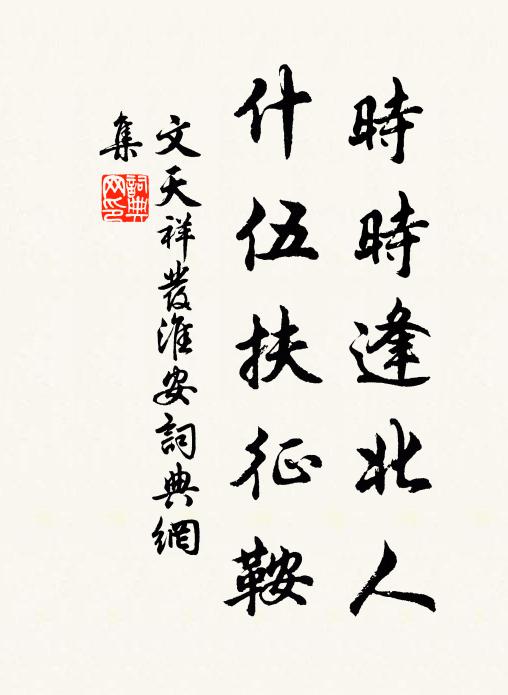 時時逢北人
什伍扶征鞍
文天祥發淮安詞典網
集
詞典網印